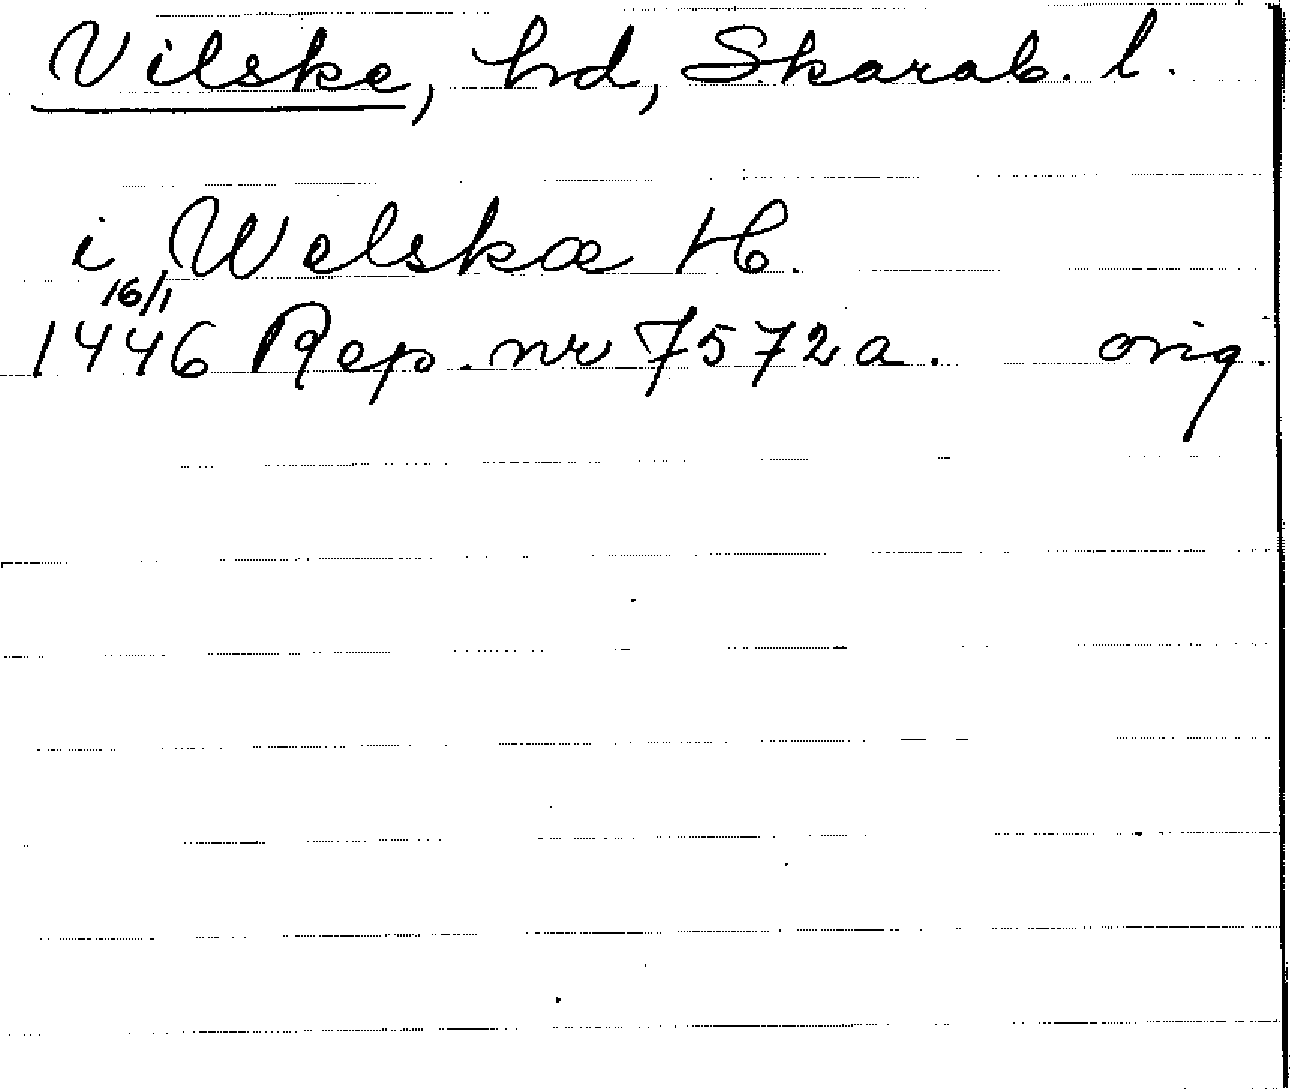 Vilske, hd, Skarab. l.
i Welskæ H.
16/1
1446 Rep. nr 7572 a. orig.